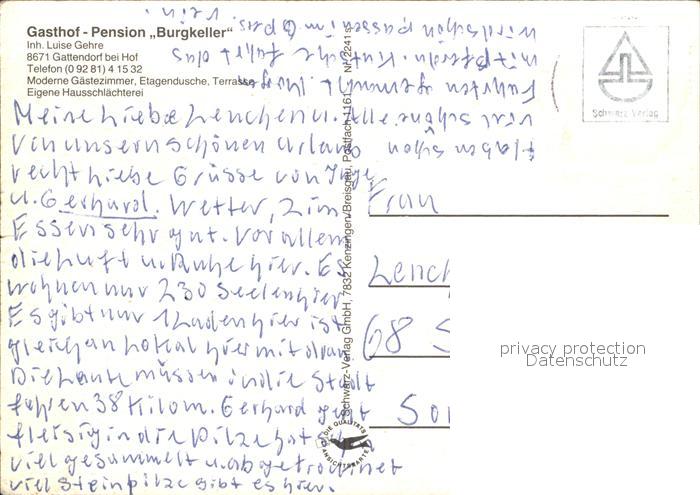 Gasthof - Pension „Burgkeller"
Inh. Luise Gehre
8671 Gattendorf bei Hof
Telefon (0 92 81) 4 15 32
Moderne Gästezimmer, Etagendusche, Terrasse
Eigene Hausschlächterei
Meine Liebe Lenchen u. Alle.
Von unsern schönen Urlaub
recht liebe Grüsse von Inge
u. Gerhard. Wetter, Zim
Essen sehr gut. Vor allem
die Luft u. Ruhe hier. Es
wohnen nur 230 Seelen hier
Es gibt nur 1 Laden hier ist
gleich an Lokal hier mit dran.
Die Leute müssen in die Stadt
fahren 38 Kilom. Gerhard geht
fleisig in die Pilze hat
viel gesammelt u. abgetrocknet
viel Steinpilze gibt es hier.
Haben schon
viel schöne
Fuhrten gemacht. Morgen
mit Pferdn. Kutsche fahrt das
wird schon passen im
rein.
Schwarz-Verlag GmbH, 7832 Kenzingen/Breisgau, Postfach 1161 Nr. 2241
DIE QUALITÄTS
ANSICHTSKARTE
Schwarz-Verlag
Frau
Lench
68 S
Son
privacy protection
Datenschutz